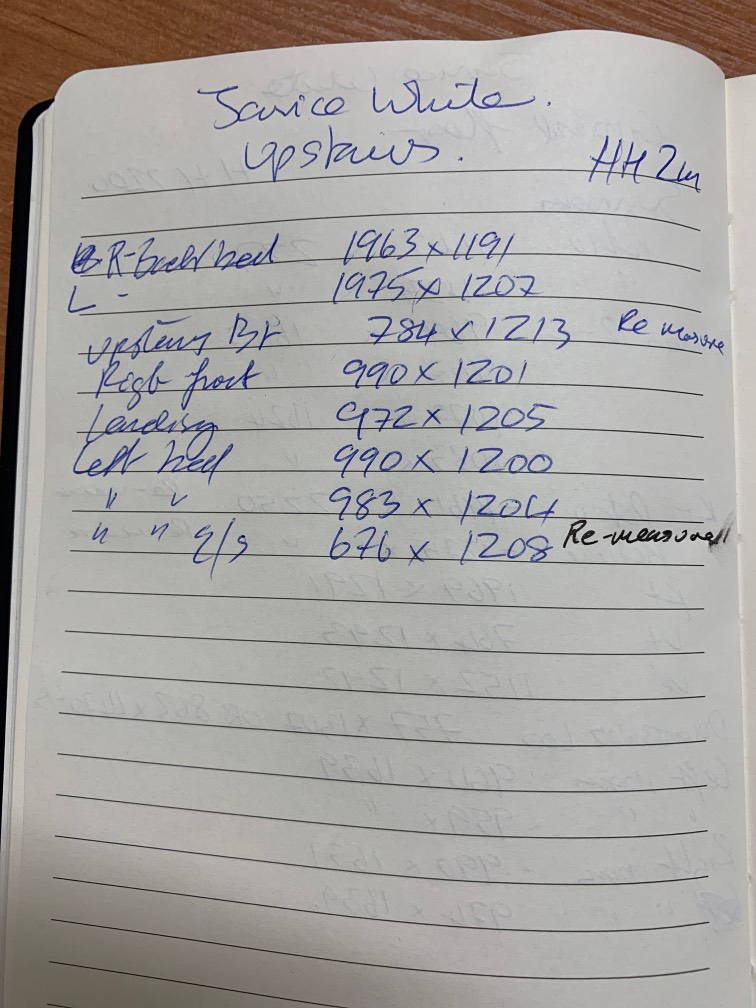 Janice White.
Upstairs.
HH 2m
R-Back/bed 1963 x 1191
L - 1975 x 1207
upstairs Br 784 x 1213 Re measure
Right front 990 x 1201
Landing 972 x 1205
Left bed 990 x 1200
" " 983 x 1204
" " e/s 676 x 1208 Re-measure//